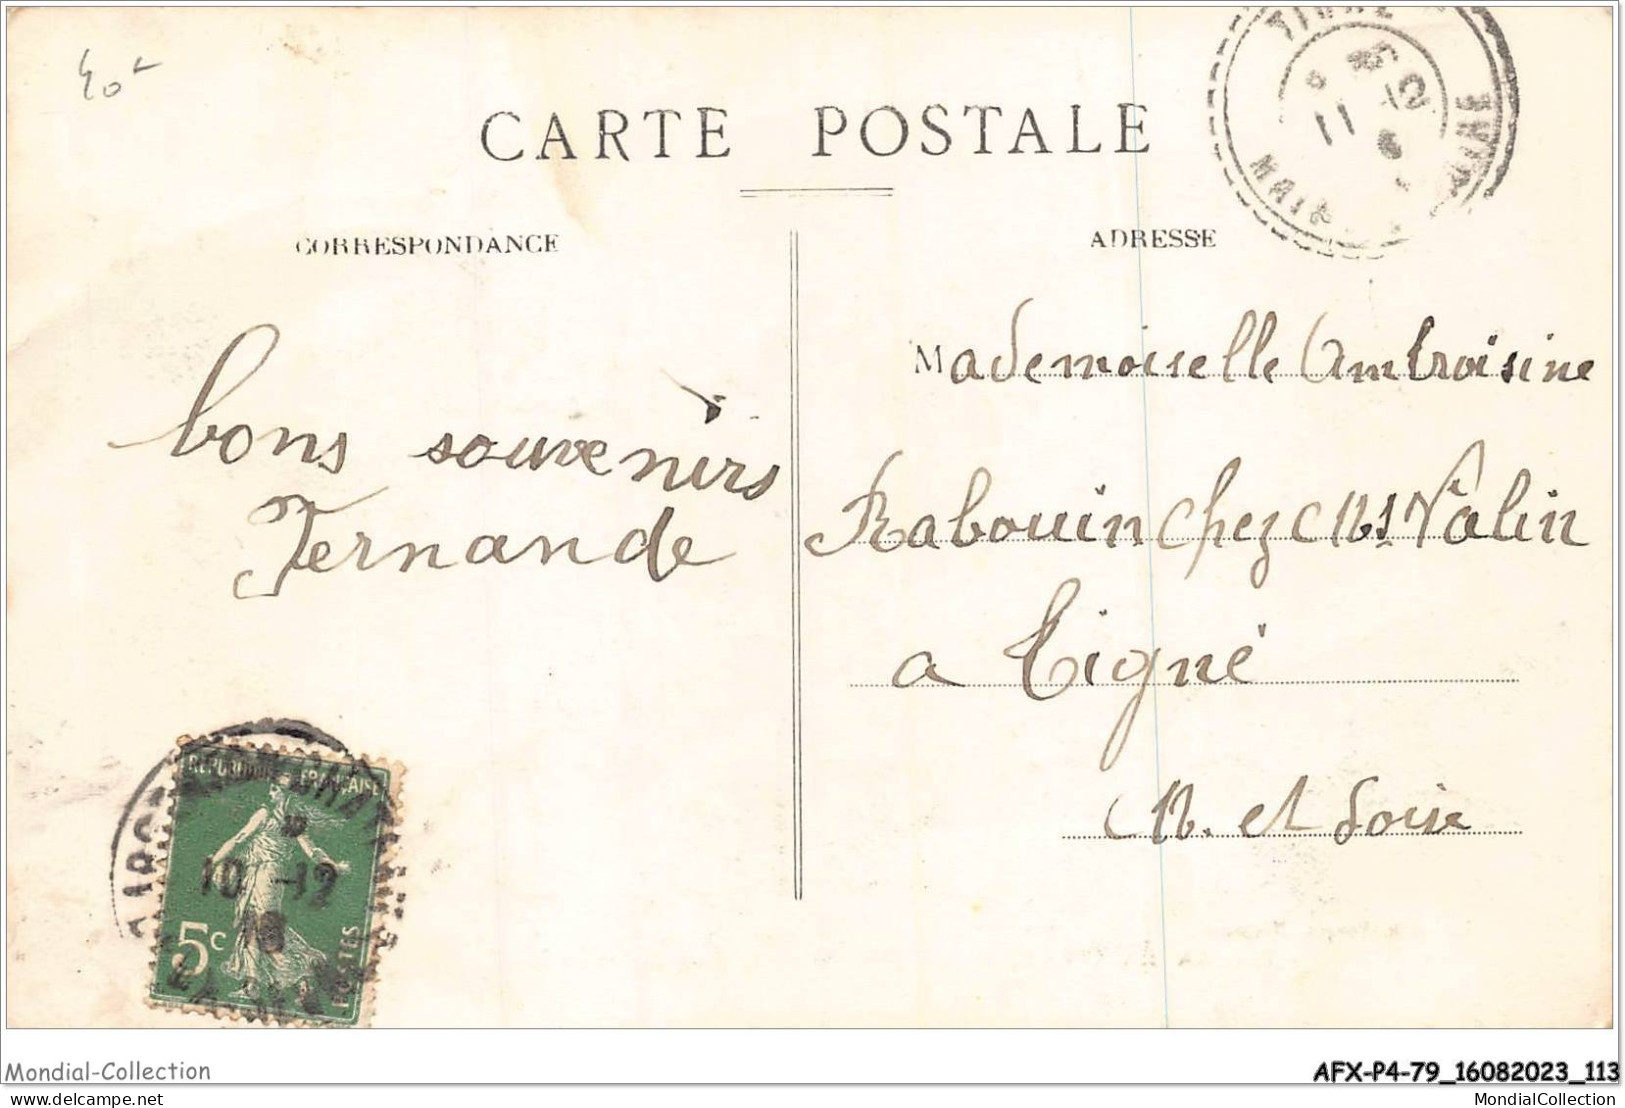 40
CARTE POSTALE
CORRESPONDANCE
ADRESSE
bons souvenirs
Fernande
Mademoiselle Ambroisine
Rabouin chez Mr Valin
a Tigné
M. et Loire
REPUBLIQUE FRANÇAISE
10 -12
5c
POSTES
11
Mondial-Collection
AFX-P4-79_16082023_113
delcampe.net
MondialCollection